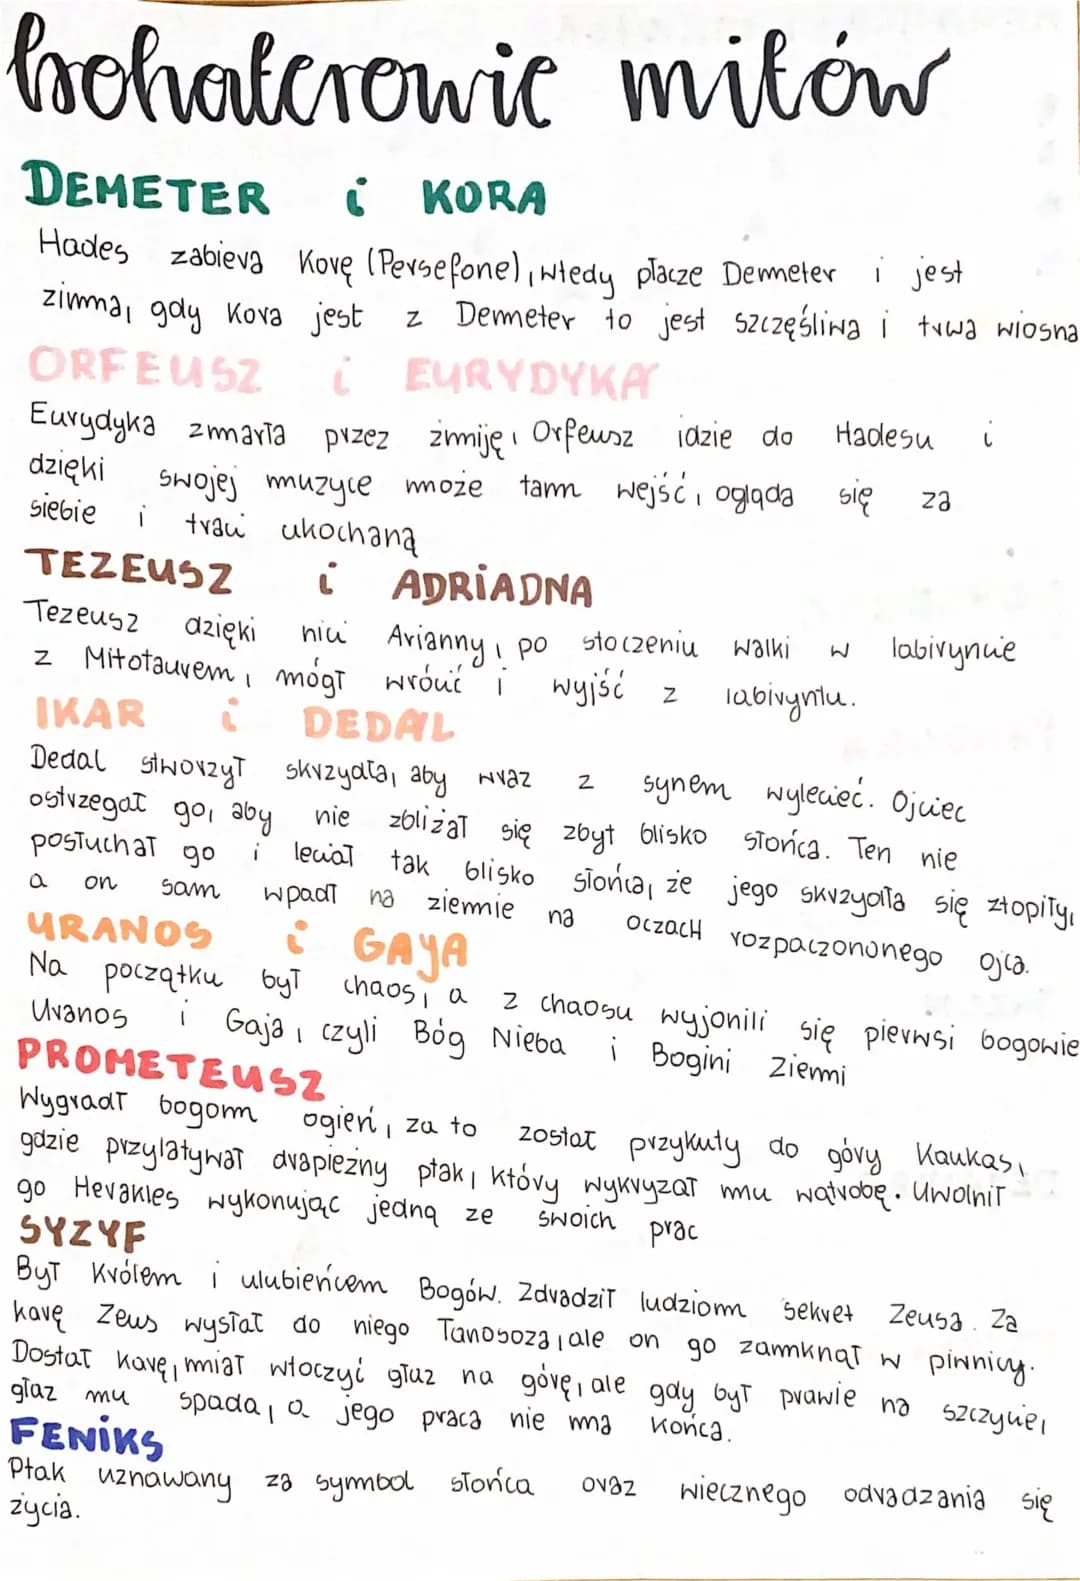 bohaterowie mitów
DEMETER i KORA
Hades zabiera Korę (Persefone), wtedy płacze Demeter i jest
zimma, gdy Kora jest z Demeter to jest szczęśliwa i trwa wiosna
ORFEUSZ i EURYDYKA
Eurydyka zmarła przez żmiję, Orfeusz idzie do Hadesu i
dzięki swojej muzyce może tam wejść, ogląda się za
siebie i traci ukochaną
TEZEUSZ i ADRIADNA
Tezeusz dzięki nici Arianny, po stoczeniu walki w labiryncie
z Mitotaurem, mógł wrócić i wyjść z labiryntu.
IKAR i DEDAL
Dedal stworzył skrzydła, aby wraz z synem wylecieć. Ojciec
ostrzegał go, aby nie zbliżał się zbyt blisko słońca. Ten nie
posłuchał go i leciał tak blisko słońca, że jego skrzydła się złopiły,
a on sam wpadł na ziemie na oczach rozpaczononego ojca.
URANOS i GAYA
Na początku był chaos, a z chaosu wyjonili się pierwsi bogowie
Uranos i Gaja, czyli Bóg Nieba i Bogini Ziemi
PROMETEUSZ
Wygradł bogom ogień, za to został przykuty do góry Kaukas,
gdzie przylatywał drapieżny ptak, który wykryzał mu wątrobę. Uwolnił
go Herakles wykonując jedną ze swoich prac
SYZYF
Był Królem i ulubieńcem Bogów. Zdradził ludziom sekret Zeusa. Za
karę Zeus wysłał do niego Tanosoza, ale on go zamknął w piwnicy.
Dostał karę, miał wtoczyć głaz na górę, ale gdy był prawie na szczycie,
głaz mu spada, a jego praca nie ma końca.
FENIKS
Ptak uznawany za symbol słońca oraz wiecznego odradzania się
życia.